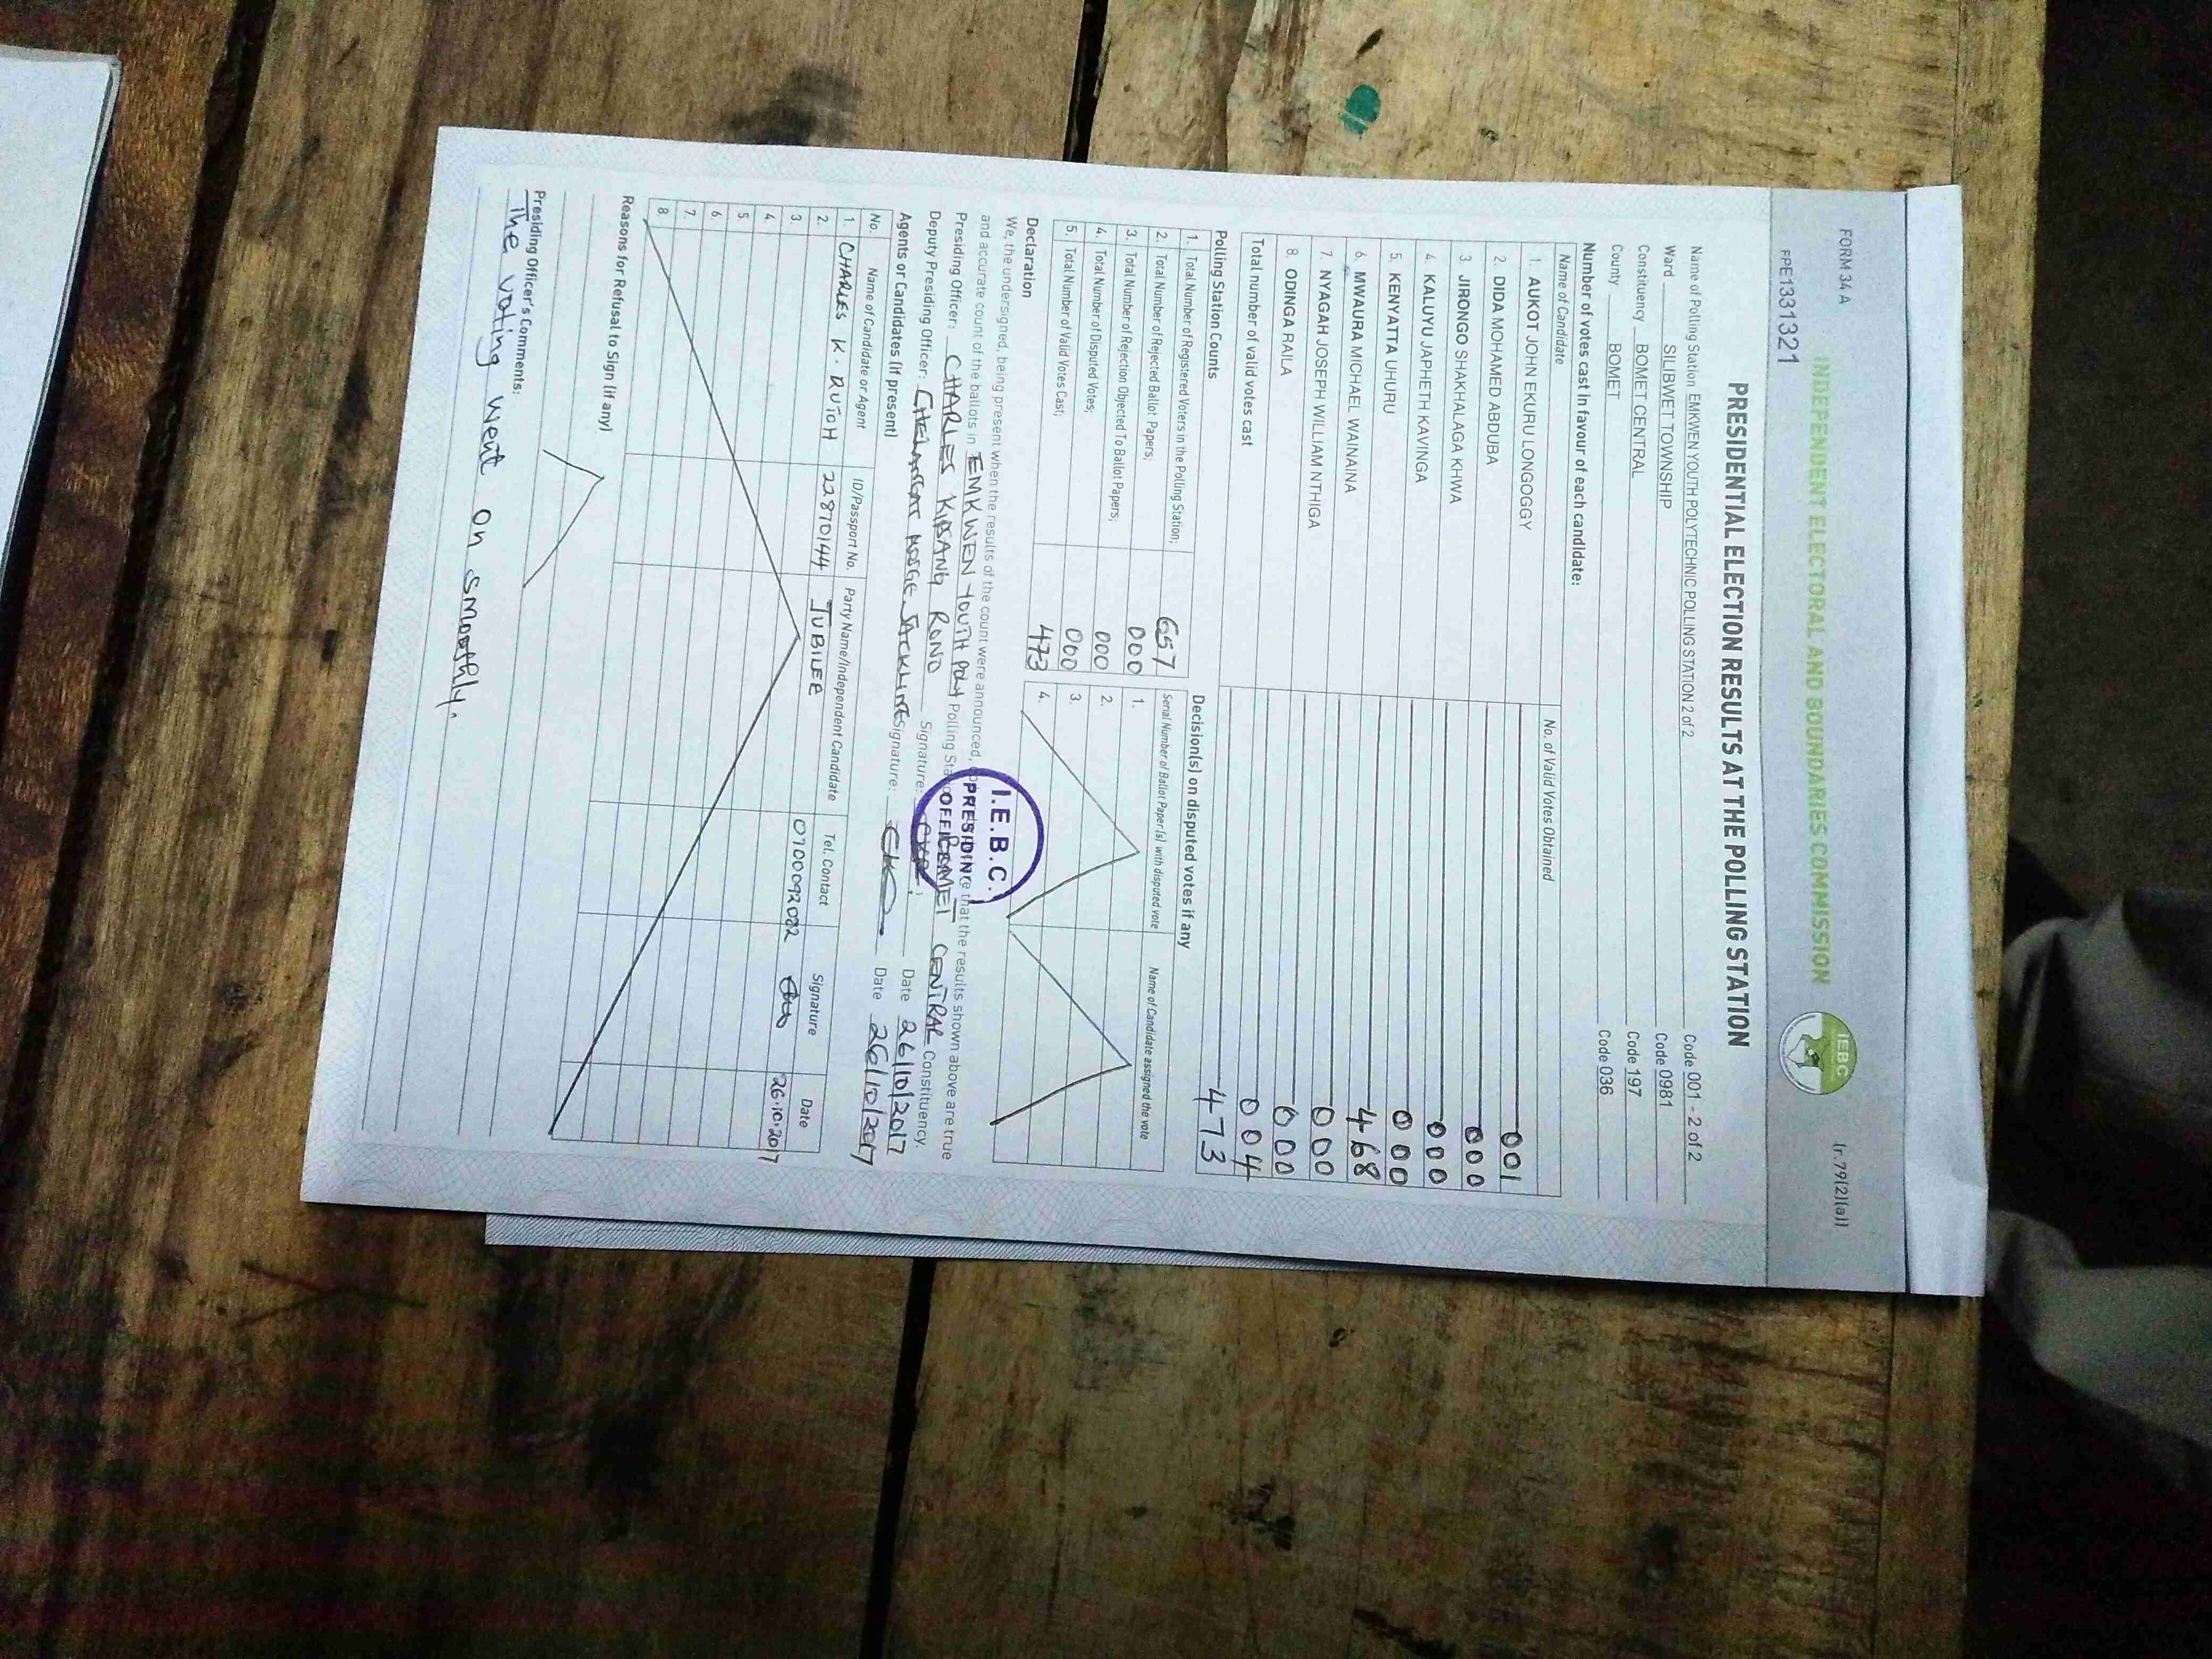 FORM 34 A
(r.79(2)(a))
INDEPENDENT ELECTORAL AND BOUNDARIES COMMISSION
IEBC
PRESIDENTIAL ELECTION RESULTS AT THE POLLING STATION
Name of Polling Station EMKWEN YOUTH POLYTECHNIC POLLING STATION 2 of 2 Code 001 - 2 of 2
Ward SILIBWET TOWNSHIP Code 0981
Constituency BOMET CENTRAL Code 197
County BOMET Code 036
Number of votes cast in favour of each candidate:
Name of Candidate No. of Valid Votes Obtained
1. AUKOT JOHN EKURU LONGOGGY 001
2. DIDA MOHAMED ABDUBA 000
3. JIRONGO SHAKHALAGA KHWA 000
4. KALUYU JAPHETH KAVINGA 000
5. KENYATTA UHURU 468
6. MWAURA MICHAEL WAINAINA 000
7. NYAGAH JOSEPH WILLIAM NTHIGA 000
8. ODINGA RAILA 004
Total number of valid votes cast 473
Polling Station Counts
1. Total Number of Registered Voters in the Polling Station; 657
2. Total Number of Rejected Ballot Papers; 000
3. Total Number of Rejection Objected To Ballot Papers; 000
4. Total Number of Disputed Votes; 000
5. Total Number of Valid Votes Cast; 473
Decision(s) on disputed votes if any
Serial Number of Ballot Paper (s) with disputed vote Name of Candidate assigned the vote
1.
2.
3.
4.
Declaration
We, the undersigned, being present when the results of the count were announced, that the results shown above are true
and accurate count of the ballots in EMKWEN YOUTH POLY Polling BOMET CENTRAL Constituency.
Presiding Officer: CHARLES KIBSANG RONO Signature: Date 26/10/2017
Deputy Presiding Officer: JACKLINE Signature: Date 26/10/2017
I.E.B.C.
PRESIDING
OFFICER
Agents or Candidates (if present)
No. Name of Candidate or Agent ID/Passport No. Party Name/Independent Candidate Tel. Contact Signature Date
1. CHARLES K. RUTOH 22870144 JUBILEE 0700092082 26.10.2017
2.
3.
4.
5
6.
7.
8.
Reasons for Refusal to Sign (if any)
Presiding Officer's Comments:
The voting went on smoothly.